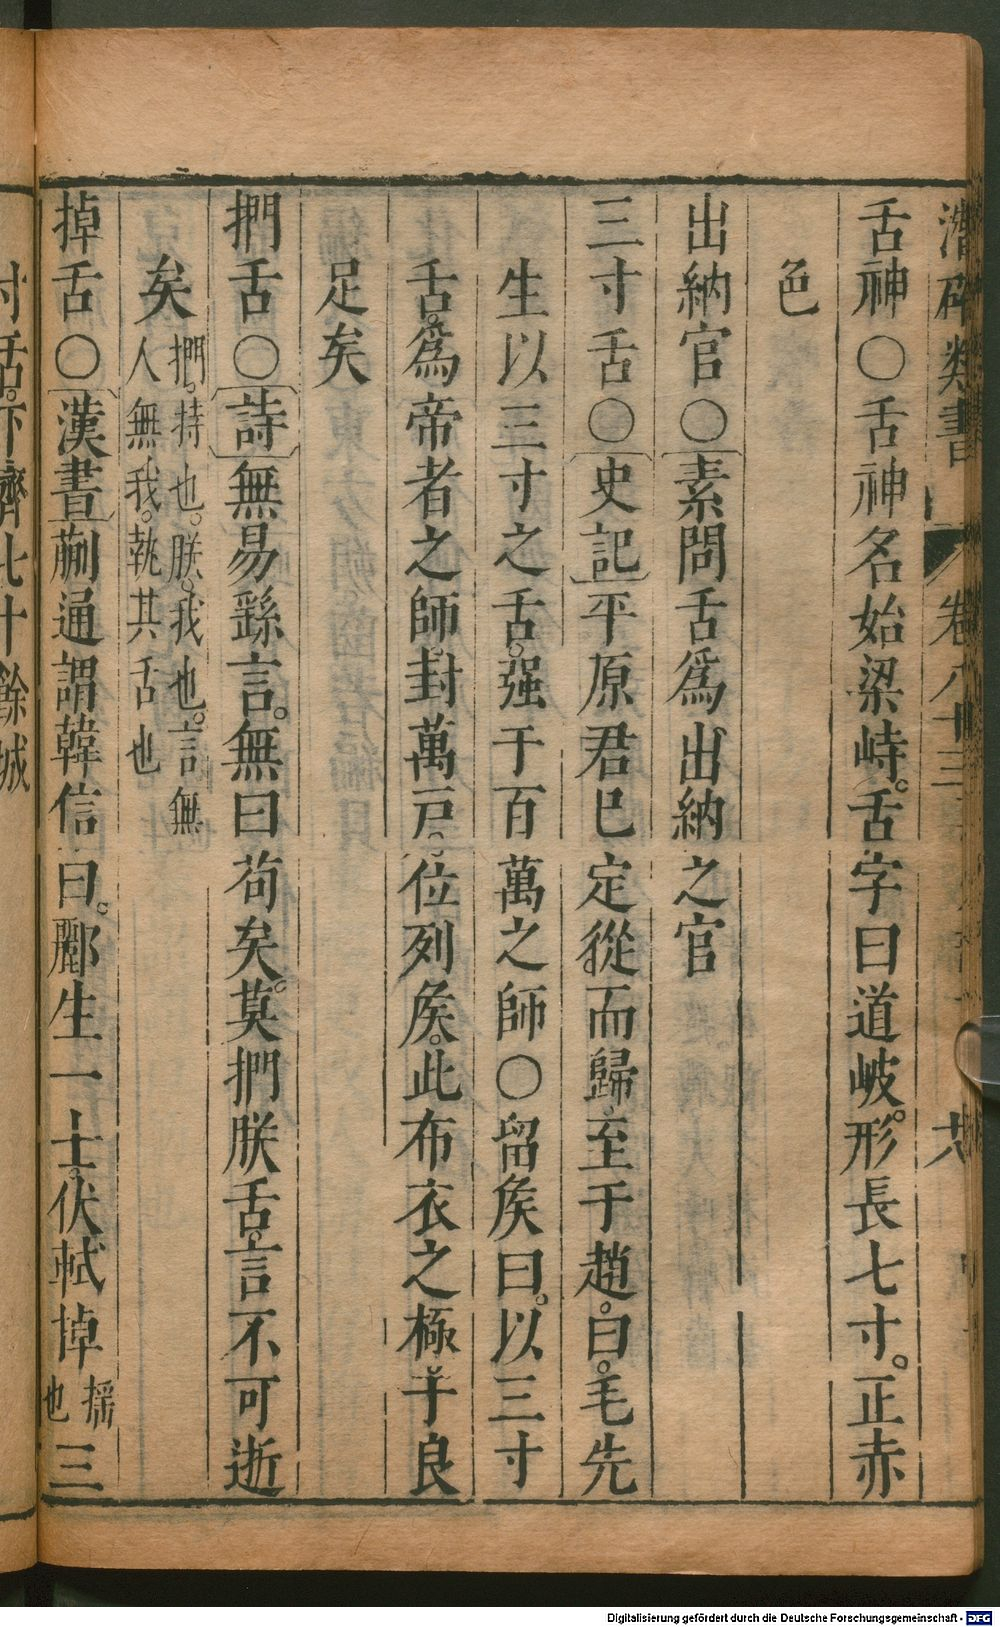 潛確類書 卷八十三 六
舌神○舌神名始梁峙。舌字曰道岐。形長七寸。正赤
色
出納官○素問舌爲出納之官
三寸舌○史記平原君已定從而歸。至于趙。曰。毛先
生以三寸之舌。强于百萬之師○留矦曰。以三寸
舌。爲帝者之師。封萬戸。位列矦。此布衣之極。于良
足矣
捫舌○詩無易繇言。無曰苟矣。莫捫朕舌。言不可逝
矣捫。持也。朕。我也。言無人無我。執其舌也
掉舌○漢書蒯通謂韓信曰。酈生一士。伏軾掉搖也三
寸舌。下齊七十餘城
Digitalisierung gefördert durch die Deutsche Forschungsgemeinschaft - DFG